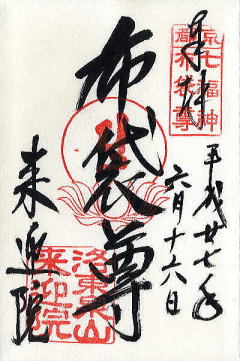 奉拝
七福神
布袋尊
平成廿七年
六月十六日
布袋尊
来迎院
洛東泉山
来迎院